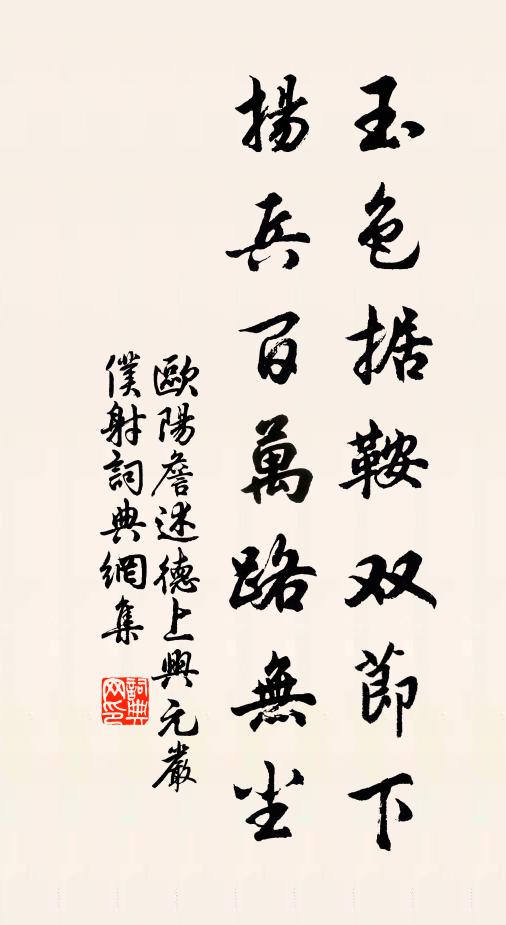 玉色据鞍双節下
揚兵百萬路無尘
歐陽詹述德上興元嚴
僕射詞典網集
詞典
网印